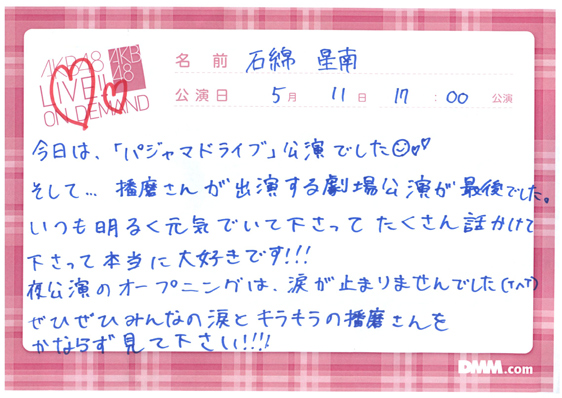 AKB48
LIVE!!
ON DEMAND
AKB
48
名前 石綿 星南
公演日 5月 11日 17:00 公演
今日は、「パジャマドライブ」公演でした
そして… 播磨さんが出演する劇場公演が最後でした。
いつも明るく元気でいて下さって たくさん話かけて
下さって本当に大好きです!!!
夜公演のオープニングは、涙が止まりませんでした(T^T)
ぜひぜひみんなの涙とキラキラの播磨さんを
かならず見て下さい!!!!
DMM.com